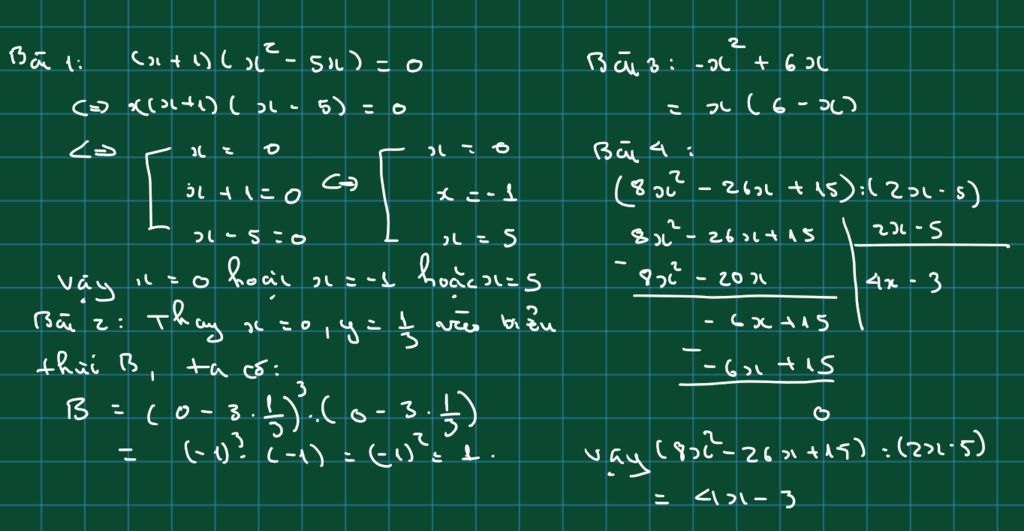 Bài 1: (x + 1)(x² - 5x) = 0
<=> x(x+1)(x - 5) = 0
<=> [ x = 0
x + 1 = 0
x - 5 = 0
<=> [ x = 0
x = -1
x = 5
Vậy x = 0 hoặc x = -1 hoặc x = 5
Bài 2: Thay x = 0, y = 1/3 vào biểu
thức B, ta có:
B = (0 - 3 . 1/3)³ . (0 - 3 . 1/3)
= (-1)³ . (-1) = (-1)² = 1.
Bài 3: -x² + 6x
= x(6 - x)
Bài 4:
(8x² - 26x + 15) : (2x - 5)
8x² - 26x + 15 | 2x - 5
- 8x² - 20x | 4x - 3
- 6x + 15
- - 6x + 15
0
Vậy (8x² - 26x + 15) : (2x - 5)
= 4x - 3